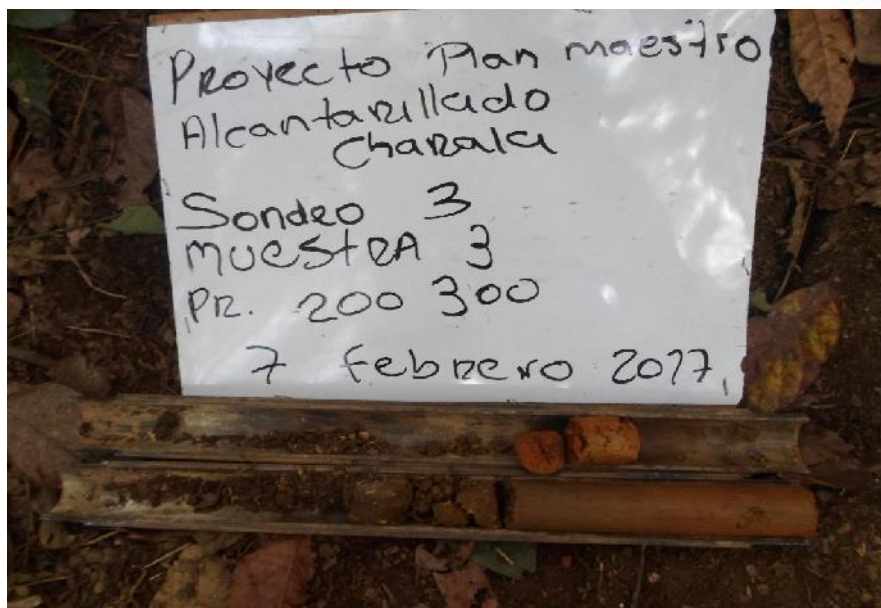 Proyecto Plan maestro
Alcantarillado
Charala
Sondeo 3
MUESTRA 3
PR. 200 300
7 Febrero 2017